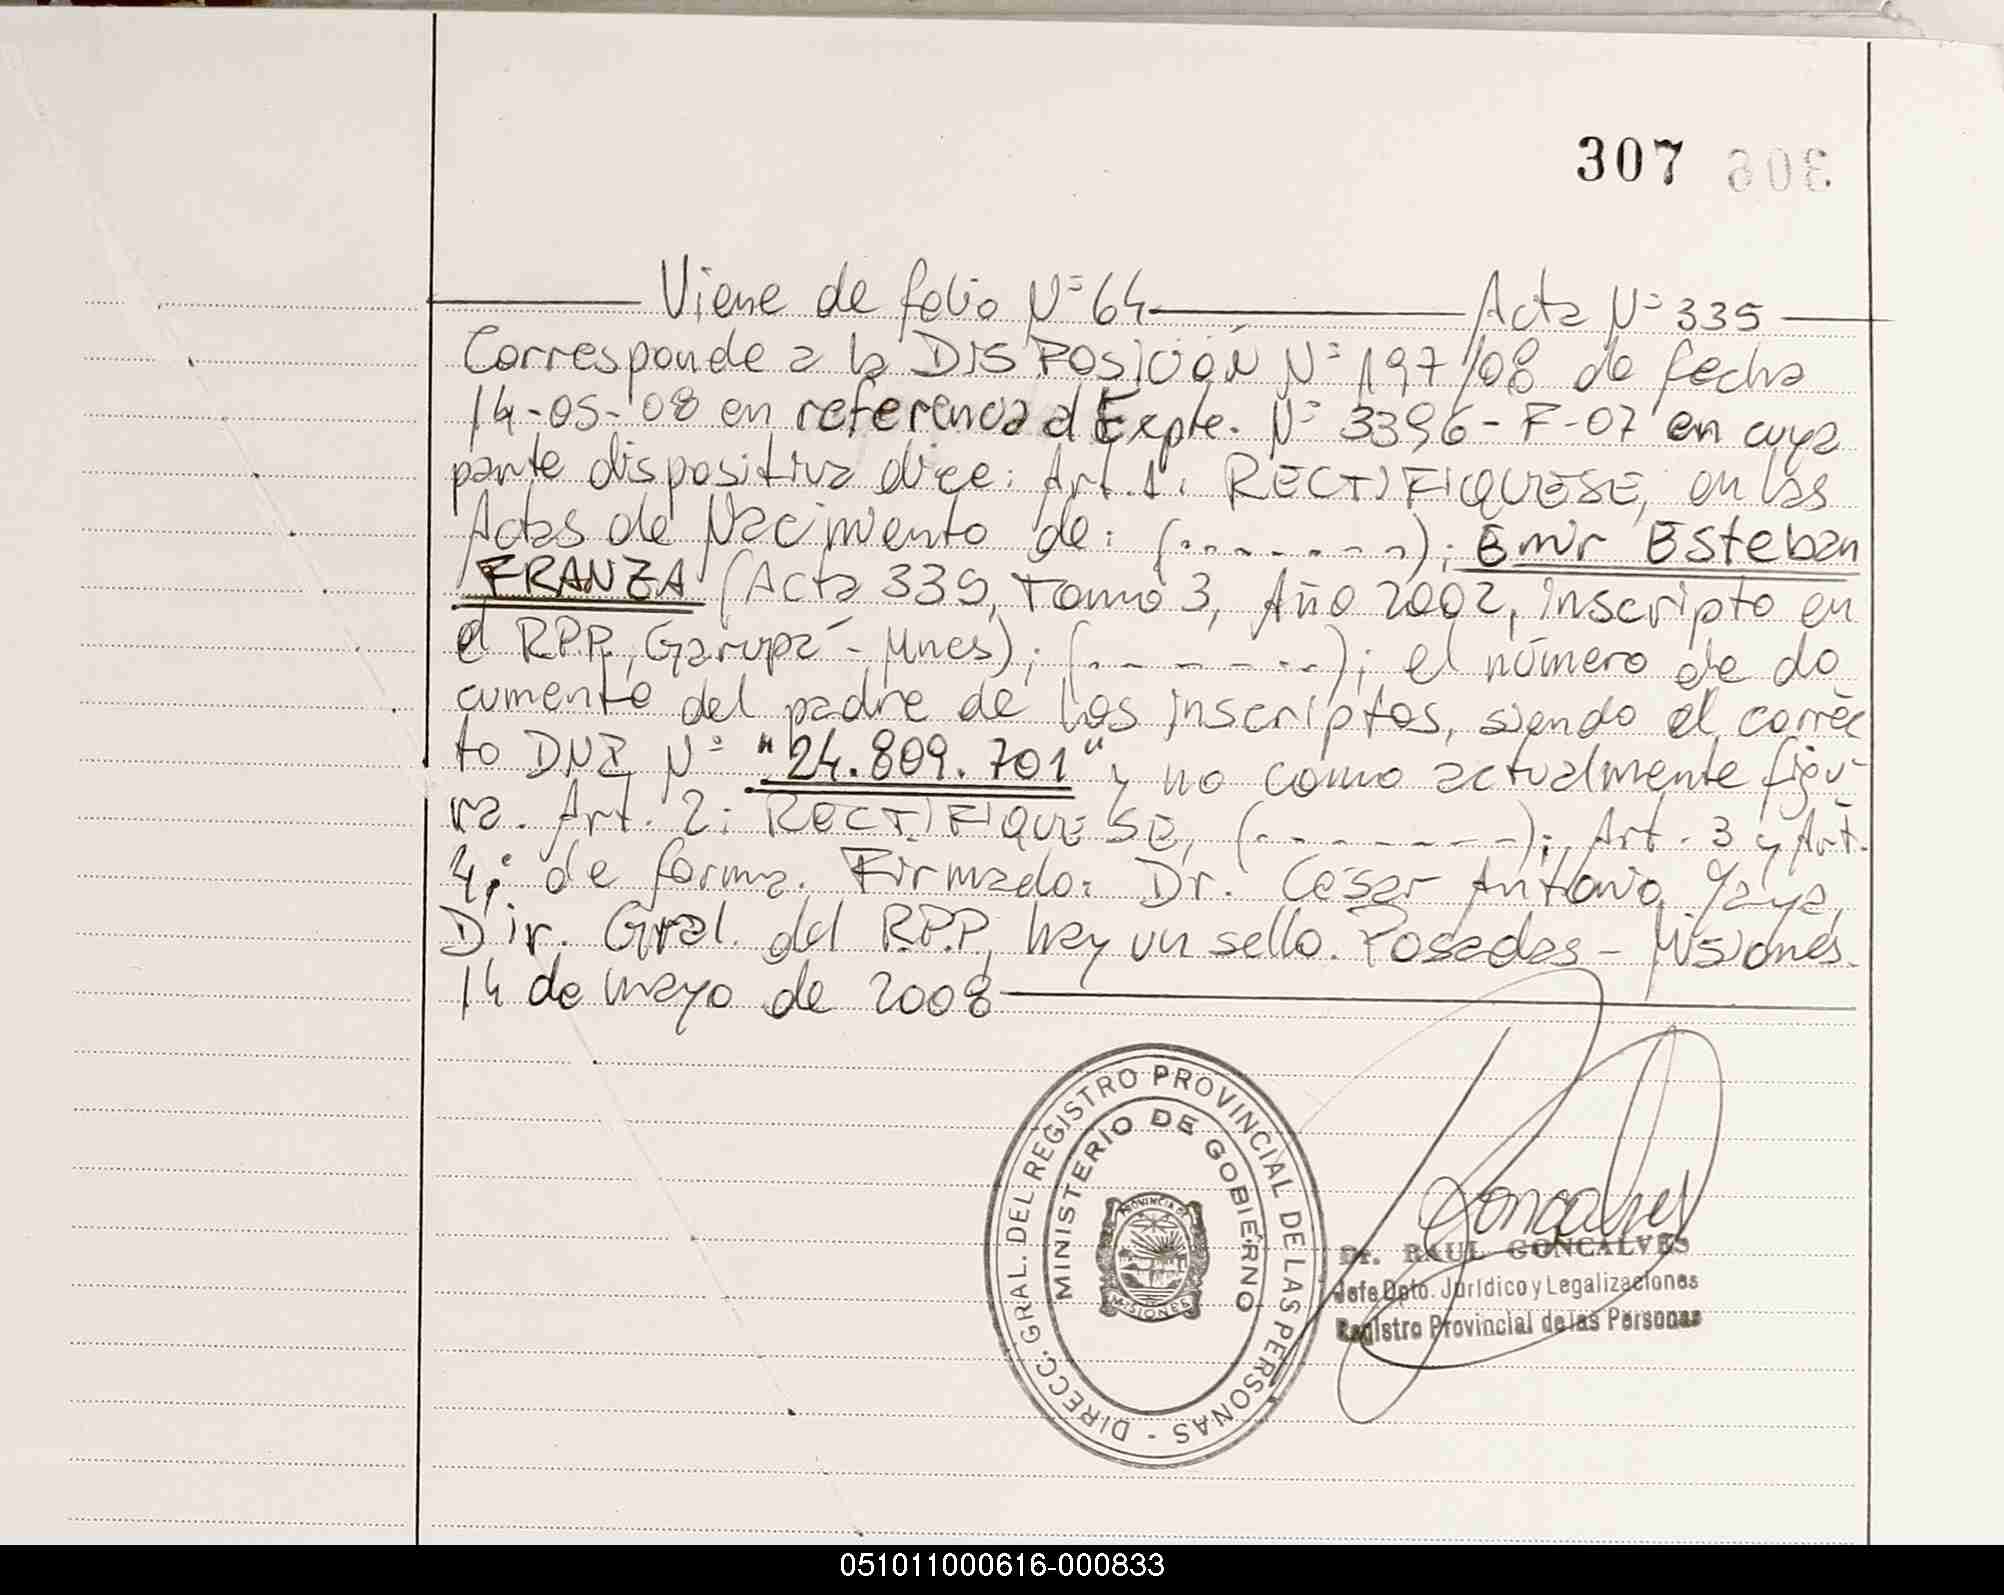 307 306
Viene de folio Nº 64 Acta Nº 335
Corresponde a la DISPOSICIÓN Nº 197/08 de fecha
14-05-08 en referencia al Expte. Nº 3396-F-07 en cuya
parte dispositiva dice: Art. 1: RECTIFIQUESE, en las
Actas de Nacimiento de: (.......); Emir Esteban
FRANZA (Acta 335, Tomo 3, Año 2002, inscripto en
el RPP, Garupá - Mnes); (.......); el número de do
cumento del padre de los inscriptos, siendo el correc
to DNI Nº "24.809.701" y no como actualmente figu-
ra. Art. 2: RECTIFIQUESE, (.......); Art. 3 y Art.
4: de forma. Firmado: Dr. César Antonio Yaya,
Dir. Gral. del R.P.P, hay un sello. Posadas - Misiones.
14 de mayo de 2008
DIRECC. GRAL. DEL REGISTRO PROVINCIAL DE LAS PERSONAS -
MINISTERIO DE GOBIERNO
PROVINCIA DE
MISIONES
Goncalves
Dr. RAUL GONCALVES
Jefe Dpto. Jurídico y Legalizaciones
Registro Provincial de las Personas
051011000616-000833